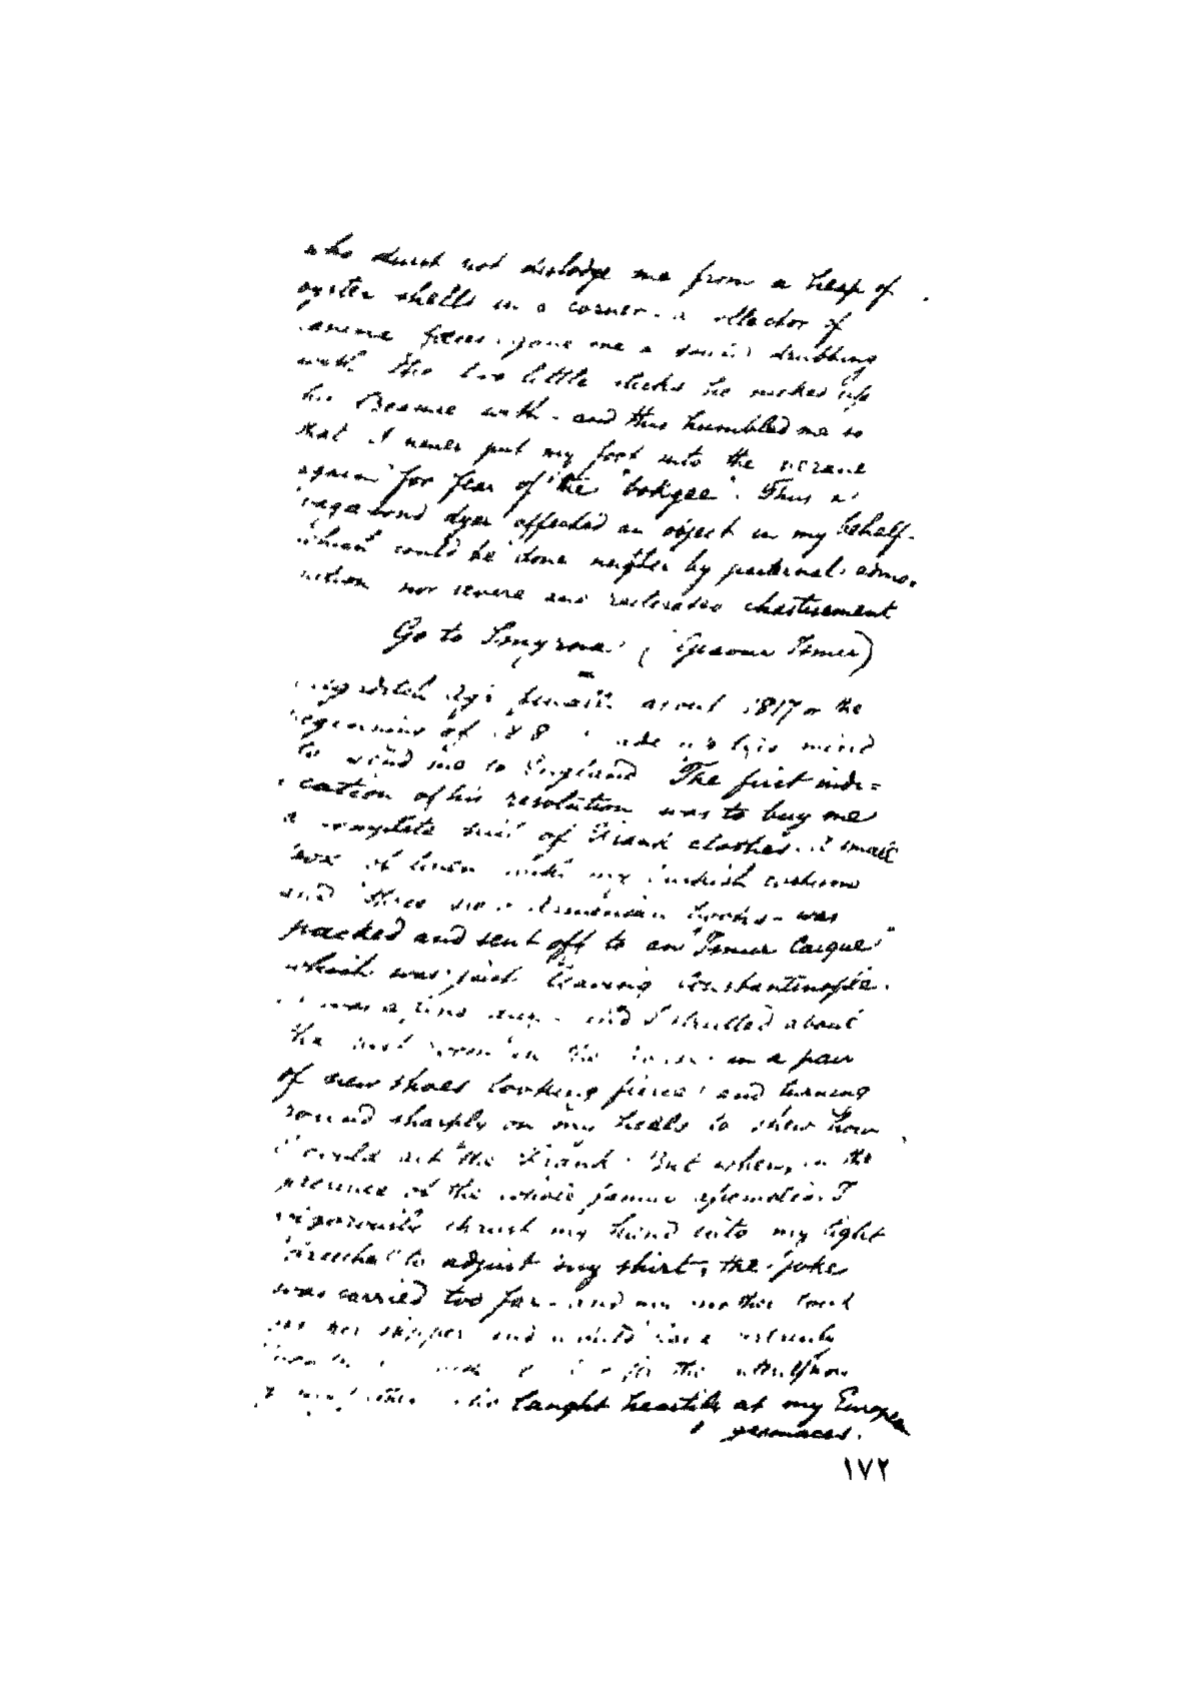 who durst not dislodge me from a heap of
oyster shells in a corner - a collector of
canine faeces - gave me a sound drubbing
with the two little sticks he
his Besome with - and thus humbled me so
that I never put my foot into the
again for fear of the "bokgee". Thus a
vagabond dyer effected an object in my behalf -
which could be done neither by paternal admo-
nition nor severe and reiterated chastisement
Go to Smyrna (
about 1817 or the
beginning of made up his mind
to send me to England The first indi=
cation of his resolution was to buy me
a complete suit of Frank clothes. A small
box of linen with my Turkish cushions
and three Armenian books - was
packed and sent off to an "Ismir Caique"
which was just leaving Constantinople.
It was a fine day - and I strutted about
the best room in the house in a pair
of new shoes looking fierce and turning
round sharply on my heels to shew how
I could act the Frank. But when, in the
presence of the whole female I
vigorously thrust my hand into my tight
breeches to adjust my shirt, the joke
was carried too far - and my mother took
off her slipper and would have certainly
for the
of my father who laught heartily at my Europea
grimaces.
١٧٢